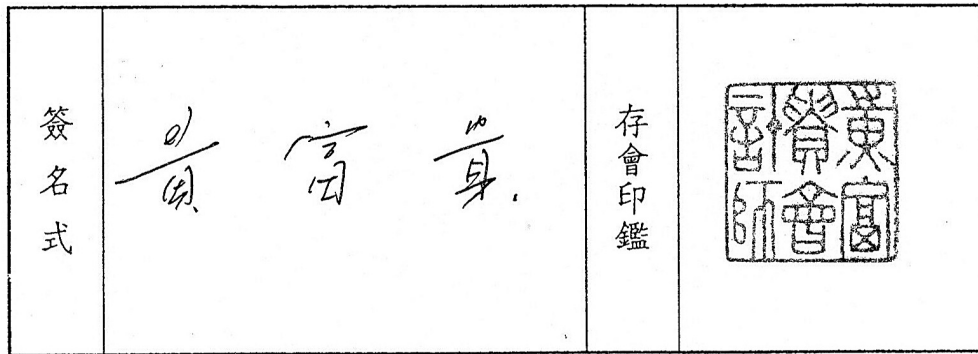 簽名式
黃富
存會印鑑
黃富
會
計師